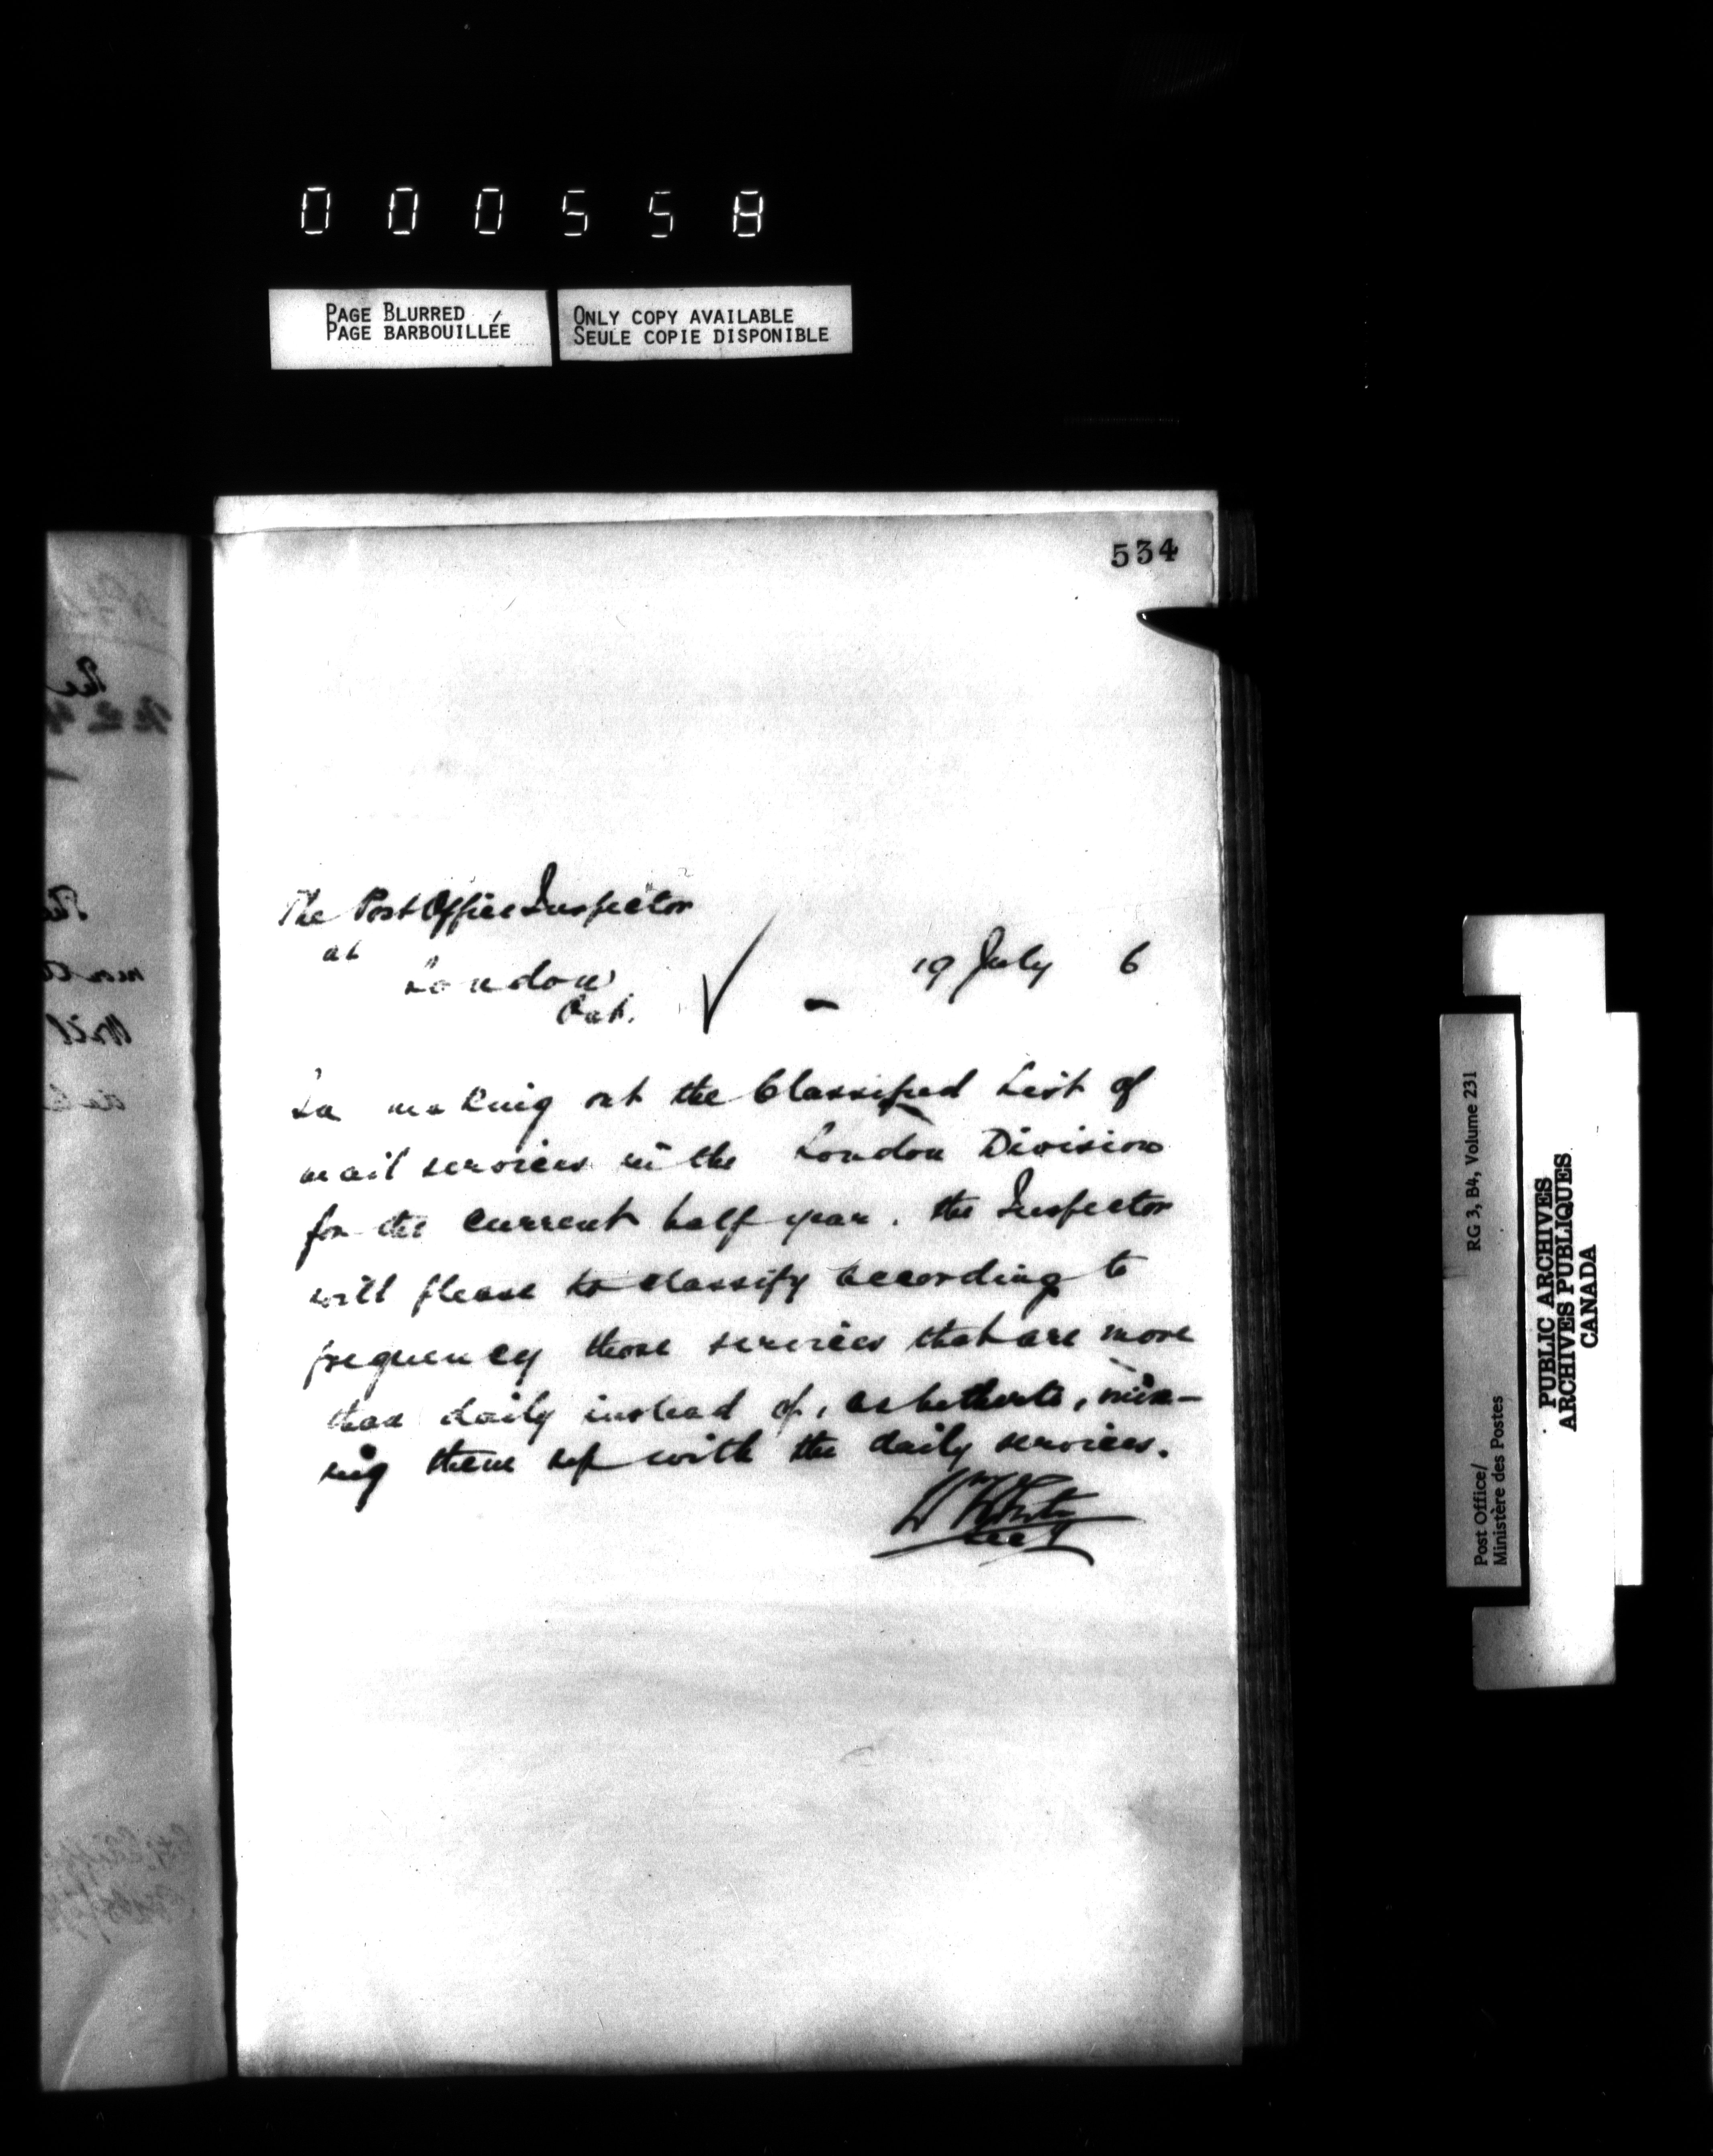 000558
PAGE BLURRED
PAGE BARBOUILLÉE
ONLY COPY AVAILABLE
SEULE COPIE DISPONIBLE
534
The Post Office Inspector
at
London
Ont.
19 July 6
In making out the Classified List of
mail services in the London Division
for the current half year. the Inspector
will please to classify according to
frequency those services that are more
than daily instead of, as hitherto, mix-
ing them up with the daily services.
Wm White
Secy
Post Office/
Ministère des Postes
RG 3, B4, Volume 231
PUBLIC ARCHIVES
ARCHIVES PUBLIQUES
CANADA